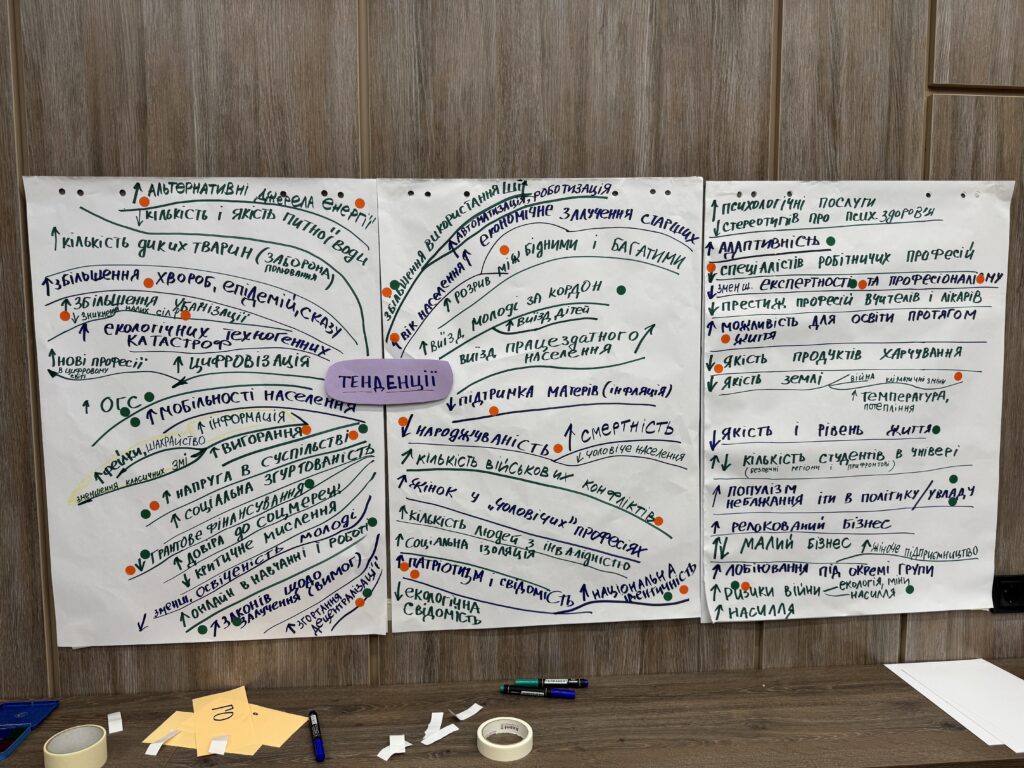 ↑ АЛЬТЕРНАТИВНІ ДЖЕРЕЛА ЕНЕРГІЇ
↓ КІЛЬКІСТЬ І ЯКІСТЬ ПИТНОЇ ВОДИ
↑ КІЛЬКІСТЬ ДИКИХ ТВАРИН (ЗАБОРОНА полювання)
↑ ЗБІЛЬШЕННЯ ХВОРОБ, ЕПІДЕМІЙ, СКАЗУ
↑ ЗБІЛЬШЕННЯ УРБАНІЗАЦІЇ
↓ Зникнення малих сіл
↑ ЕКОЛОГІЧНИХ ТЕХНОГЕННИХ
КАТАСТРОФ
↑ НОВІ ПРОФЕСІЇ
В ЦИФРОВОМУ СВІТІ
↑ ЦИФРОВІЗАЦІЯ
↑ ОГС
↑ МОБІЛЬНОСТІ НАСЕЛЕННЯ
↑ ІНФОРМАЦІЯ
↑ ФЕЙКИ, ШАХРАЙСТВО
ЗМЕНШЕННЯ КЛАСИЧНИХ ЗМІ
↑ ВИГОРАННЯ
↑ НАПРУГА В СУСПІЛЬСТВІ
↑ СОЦІАЛЬНА ЗГУРТОВАНІСТЬ
↓ ГРАНТОВЕ ФІНАНСУВАННЯ
↑ ДОВІРА ДО СОЦМЕРЕЖ
↓ КРИТИЧНЕ МИСЛЕННЯ
↓ ЗМЕНШ. ОСВІЧЕНІСТЬ МОЛОДІ
↑ ОНЛАЙН В НАВЧАННІ І РОБОТІ
↑ ЗАКОНІВ ЩОДО
ЗАЛУЧЕННЯ (ВИМОГ)
↑ ЗГОРТАННЯ
ДЕЦЕНТРАЛІЗАЦІЇ
ТЕНДЕНЦІЇ
ЗБІЛЬШЕННЯ ВИКОРИСТАННЯ ШІ
↑ АВТОМАТИЗАЦІЯ, РОБОТИЗАЦІЯ
↑ ЕКОНОМІЧНЕ ЗАЛУЧЕННЯ СТАРШИХ
↑ ВІК НАСЕЛЕННЯ
↑ РОЗРИВ МІЖ БІДНИМИ І БАГАТИМИ
↑ ВИЇЗД МОЛОДІ ЗА КОРДОН
↑ ВИЇЗД ДІТЕЙ
ВИЇЗД ПРАЦЕЗДАТНОГО ↑
НАСЕЛЕННЯ
↓ ПІДТРИМКА МАТЕРІВ (ІНФЛЯЦІЯ)
↓ НАРОДЖУВАНІСТЬ
↑ СМЕРТНІСТЬ
↓ ЧОЛОВІЧЕ НАСЕЛЕННЯ
↑ КІЛЬКІСТЬ ВІЙСЬКОВИХ КОНФЛІКТІВ
↑ ЖІНОК У „ЧОЛОВІЧИХ" ПРОФЕСІЯХ
↑ КІЛЬКІСТЬ ЛЮДЕЙ З ІНВАЛІДНІСТЮ
↑ СОЦІАЛЬНА ІЗОЛЯЦІЯ
↑ ПАТРІОТИЗМ І СВІДОМІСТЬ
↑ НАЦІОНАЛЬНА
ІДЕНТИЧНІСТЬ
↓ ЕКОЛОГІЧНА
СВІДОМІСТЬ
↑ ПСИХОЛОГІЧНІ ПОСЛУГИ
↓ СТЕРЕОТИПІВ ПРО ПСИХ. ЗДОРОВ'Я
↑ АДАПТИВНІСТЬ
↓ СПЕЦІАЛІСТІВ РОБІТНИЧИХ ПРОФЕСІЙ
↓ ЗМЕНШ. ЕКСПЕРТНОСТІ ТА ПРОФЕСІОНАЛІЗМУ
↓ ПРЕСТИЖ ПРОФЕСІЙ ВЧИТЕЛІВ І ЛІКАРІВ
↑ МОЖЛИВІСТЬ ДЛЯ ОСВІТИ ПРОТЯГОМ
ЖИТТЯ
↓ ЯКІСТЬ ПРОДУКТІВ ХАРЧУВАННЯ
↓ ЯКІСТЬ ЗЕМЛІ
ВІЙНА
КЛІМАТИЧНІ ЗМІНИ
↑ ТЕМПЕРАТУРА,
ПОТЕПЛІННЯ
↓ ЯКІСТЬ І РІВЕНЬ ЖИТТЯ
↑↓ КІЛЬКІСТЬ СТУДЕНТІВ В УНІВЕРІ
(БЕЗПЕЧНІ РЕГІОНИ І ПРИФРОНТОВІ)
↑ ПОПУЛІЗМ
НЕБАЖАННЯ ІТИ В ПОЛІТИКУ/УВЛАДУ
↑ РЕЛОКОВАНИЙ БІЗНЕС
↑↓ МАЛИЙ БІЗНЕС ↑ ЖІНОЧЕ ПІДПРИЄМНИЦТВО
↑ ЛОБІЮВАННЯ ПІД ОКРЕМІ ГРУПИ
↑ РИЗИКИ ВІЙНИ
ЕКОЛОГІЯ, МІНИ
НАСИЛЛЯ
↑ НАСИЛЛЯ
ПО